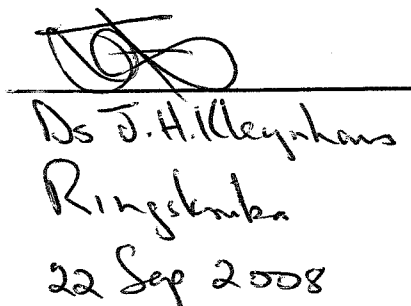 Ds J.H. Kleynhans
Ringskriba
22 Sep 2008